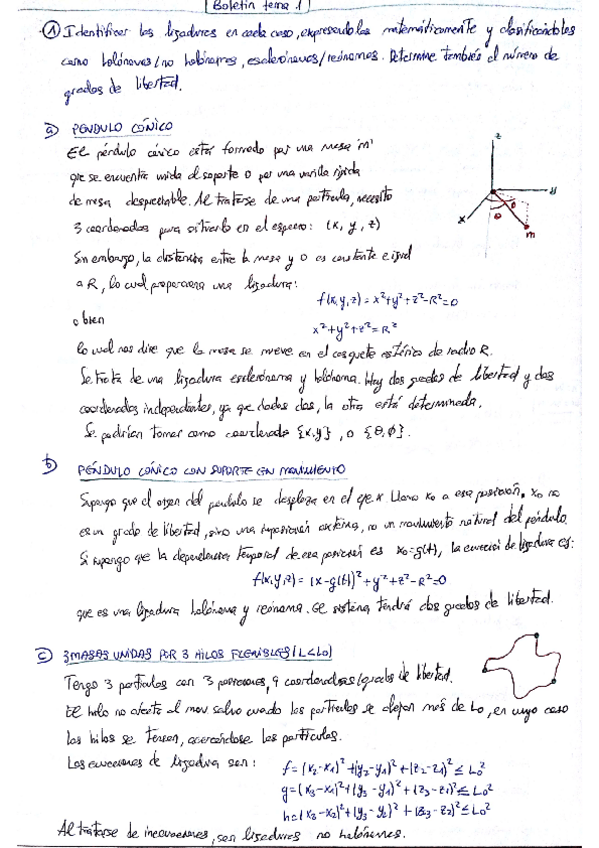 Boletín tema 1
① Identificar las ligaduras en cada caso, expresandolas matemáticamente y clasificándolas
como holónomas/no holónomas, esclerónomas/reónomas. Determine también el número de
grados de libertad.
a) PÉNDULO CÓNICO
El péndulo cónico está formado por una masa 'm'
que se encuentra unida al soporte O por una varilla rígida
de masa despreciable. Al tratarse de una partícula, necesito
3 coordenadas para situarlo en el espacio: (x, y, z)
Sin embargo, la distancia entre la masa y O es constante e igual
a R, lo cual proporciona una ligadura:
f(x,y,z) = x²+y²+z²-R²=0
o bien
x²+y²+z²=R²
lo cual nos dice que la masa se mueve en el casquete esférico de radio R.
Se trata de una ligadura esclerónoma y holónoma. Hay dos grados de libertad y dos
coordenadas independientes, ya que dadas dos, la otra está determinada.
Se podrían tomar como coordenadas {x,y}, o {θ,ϕ}.
z
y
x
θ
m
b) PÉNDULO CÓNICO CON SOPORTE EN MOVIMIENTO
Supongo que el origen del péndulo se desplaza en el eje x. Llamo x₀ a esa posición. x₀ no
es un grado de libertad, sino una imposición externa, no un movimiento natural del péndulo.
Si supongo que la dependencia temporal de esa posición es x₀=g(t), la ecuación de ligadura es:
f(x,y,z) = (x-g(t))²+y²+z²-R²=0
que es una ligadura holónoma y reónoma. El sistema tendrá dos grados de libertad.
c) 3 MASAS UNIDAS POR 3 HILOS FLEXIBLES (L<L₀)
Tengo 3 partículas con 3 posiciones, 9 coordenadas/grados de libertad.
El hilo no afecta al mov salvo cuando las partículas se alejan más de L₀, en cuyo caso
los hilos se tensan, acercándose las partículas.
Las ecuaciones de ligadura son:
f = (x₂-x₁)²+(y₂-y₁)²+(z₂-z₁)² ≤ L₀²
g = (x₃-x₁)²+(y₃-y₁)²+(z₃-z₁)² ≤ L₀²
h = (x₃-x₂)²+(y₃-y₂)²+(z₃-z₂)² ≤ L₀²
Al tratarse de inecuaciones, son ligaduras no holónomas.